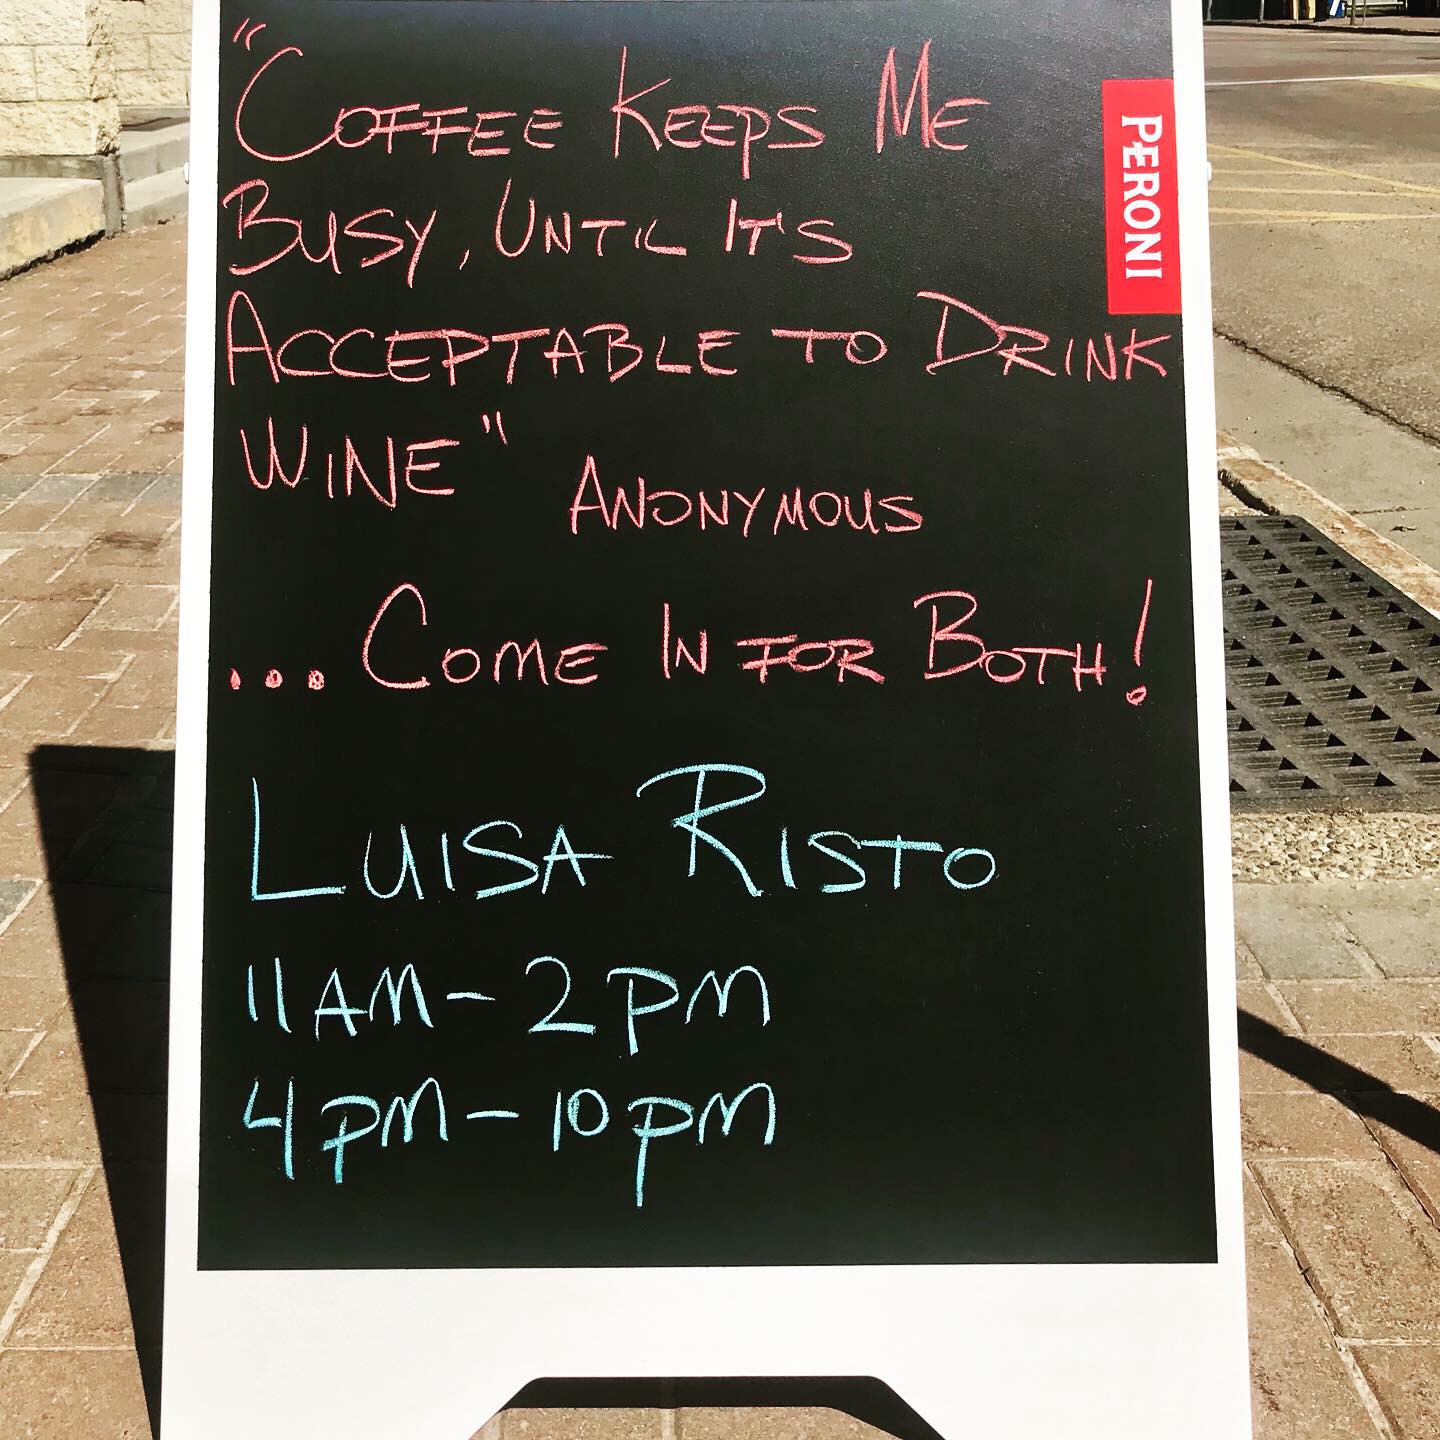 "COFFEE KEEPS ME
PERONI
BUSY, UNTIL IT'S
ACCEPTABLE TO DRINK
WINE"
ANONYMOUS
... COME IN FOR BOTH!
LUISA RISTO
11AM - 2PM
4PM - 10PM